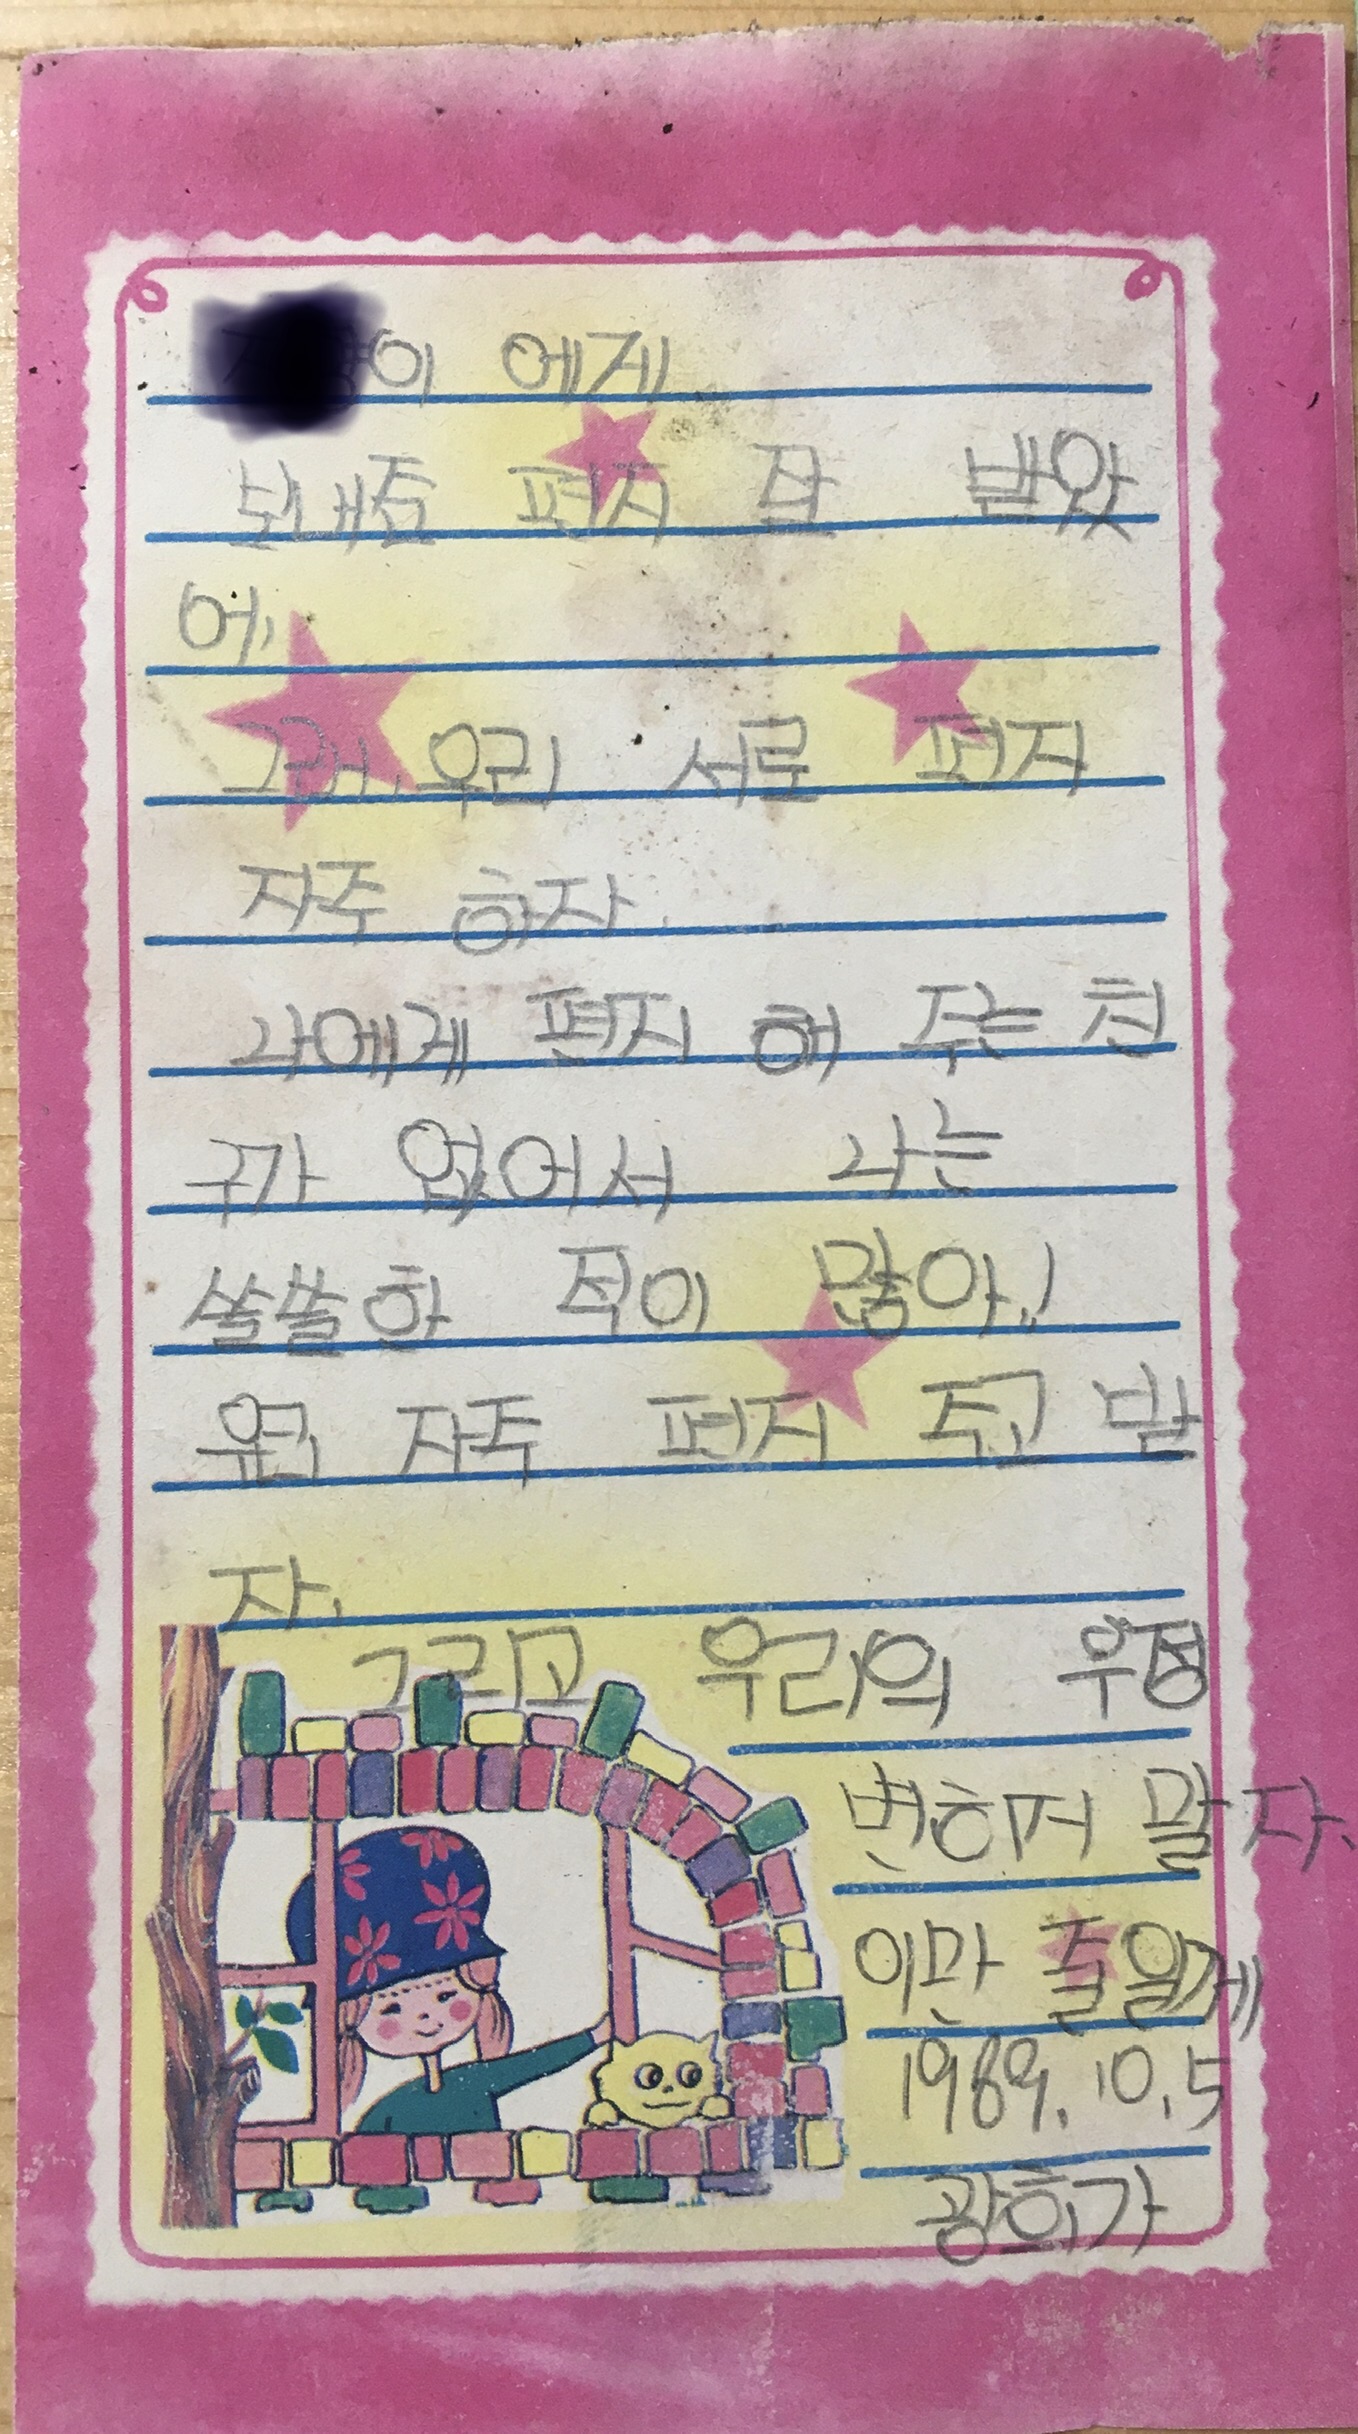 이 에게
보내준 편지 잘 받았
어.
그래. 우리 서로 편지
자주 하자.
나에게 편지 해 주는 친
구가 없어서 나는
쓸쓸한 적이 많아!
우리 자주 편지 주고 받
자.
그리고 우리의 우정
변하지 말자.
이만 줄일게
1989. 10. 5
광희가